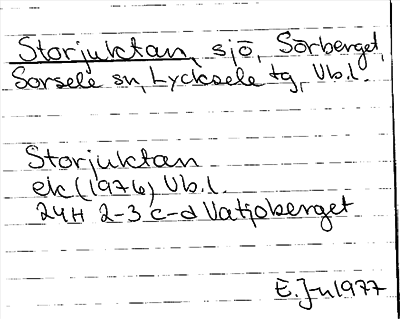 Storjuktan, sjö, Sörberget,
Sorsele sn, Lycksele tg, Vb.l.
Storjuktan
ek (1976) Vb.l.
24H 2-3 c-d Vatjoberget
E. J-n 1977